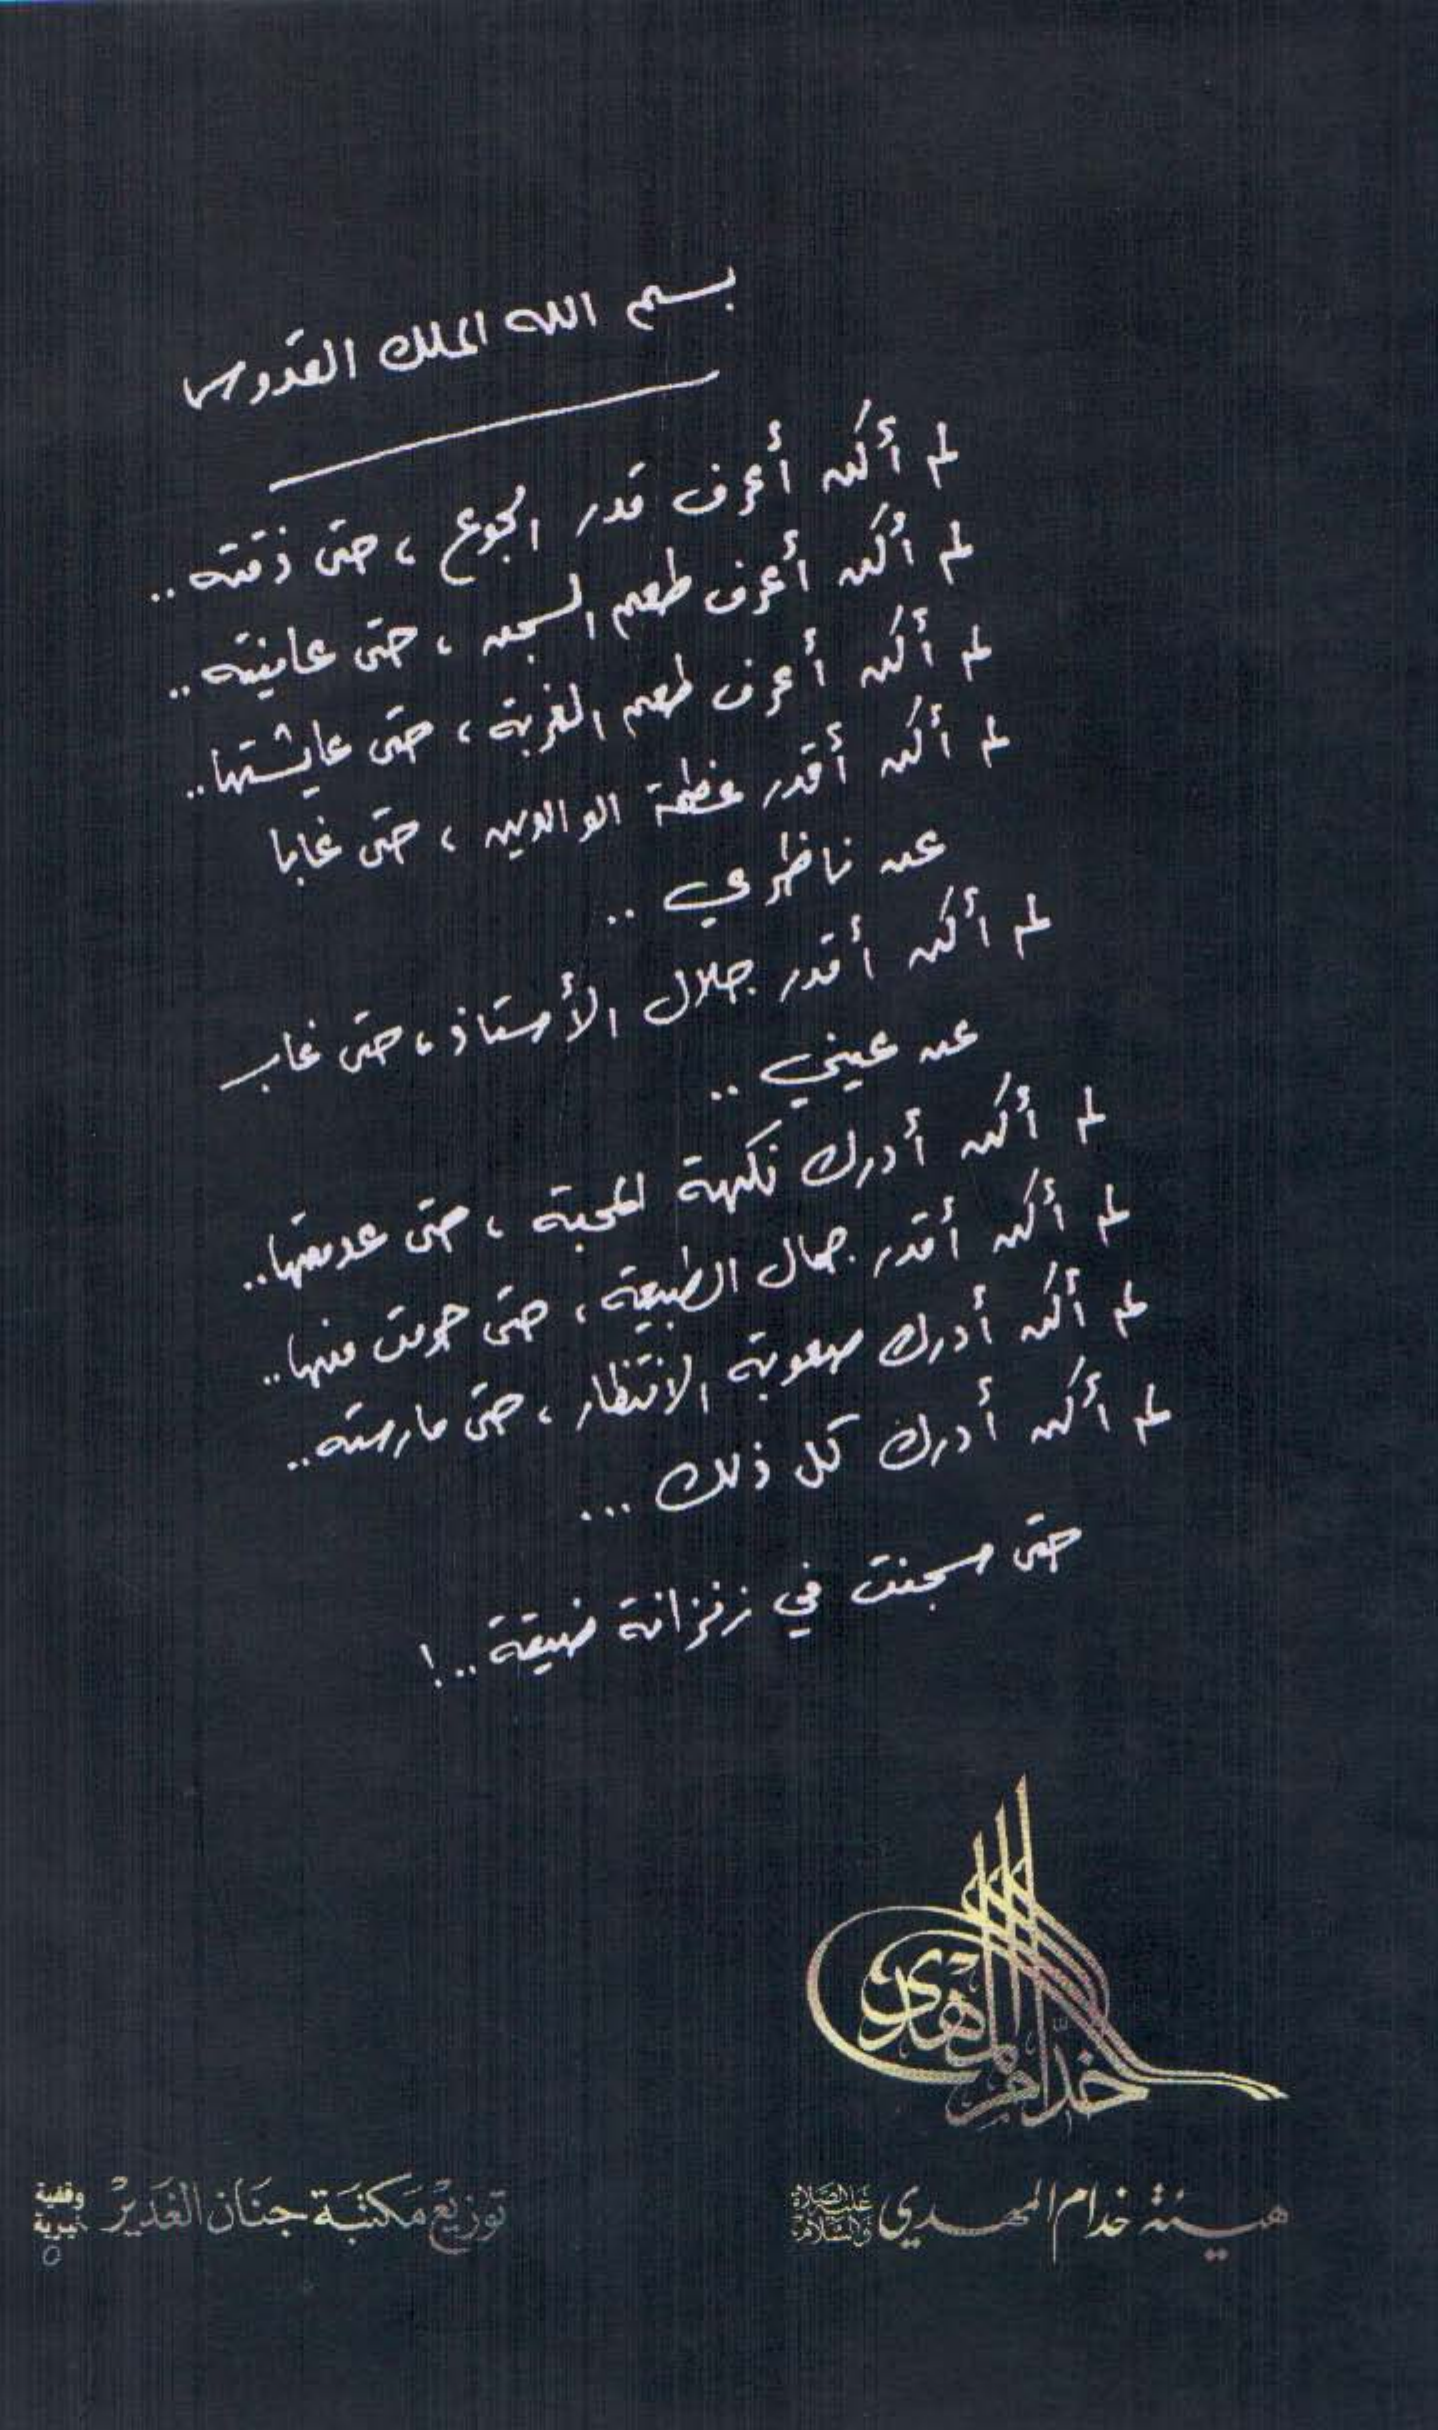 بسم الله الملك القدوس
لم أكن أعرف قدر الجوع ، حتى ذقته ..
لم أكن أعرف طعم السجن ، حتى عاينته ..
لم أكن أعرف طعم الغربة ، حتى عايشتها ..
لم أكن أقدر عظمة الوالدين ، حتى غابا
عن ناظري ..
لم أكن أقدر جلال الأستاذ ، حتى غاب
عن عيني ..
لم أكن أدرك نكهة المحبة ، حتى عدمتها ..
لم أكن أقدر جمال الطبيعة ، حتى حرمت منها ..
لم أكن أدرك صعوبة الانتظار ، حتى مارسته ..
لم أكن أدرك كل ذلك ...
حتى سجنت في زنزانة ضيقة ..!
خدّام المهدي
هيئة خدام المهدي عليه الصلاة والسلام
توزيع مكتبة جنان الغدير وقفية خيرية